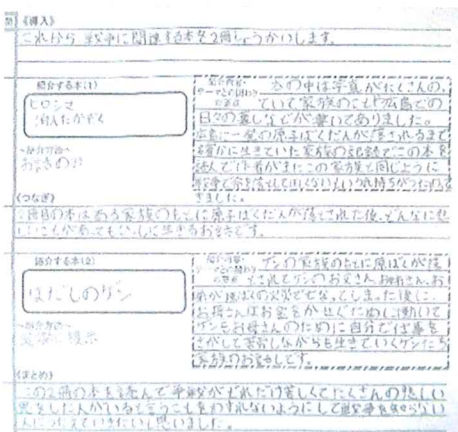 《導入》
これから戦争に関連する本を2冊しょうかいします。
紹介する本(1)
ヒロシマ
消えたかぞく
〜紹介方法〜
あらすじ
本の中は写真がたくさんの
ていて家族のことや広島での
日々の暮しなどが書いてありました。
広島に一発の原子ばくだんが落とされるまで
確かに生きていた家族の記録でこの本を
読んで作者がまたこの家族と同じように
戦争で命を落としてほしくないという気持ちがつたわって
きました。
《つなぎ》
2冊目の本はある家族のもとに原子ばくだんが落とされた後、どんなに悲
しいことがあっても
生きるお話です。
紹介する本(2)
はだしのゲン
〜紹介方法〜
ゲンの家族のもとに原ばくが落
とされてゲンのお父さん、お姉さん、お
弟が原ばくの火災で亡くなってしまった後に、
お母さんはお金をかせぐために働いて
ゲンもお母さんのために自分で仕事を
さがして苦労しながらも生きていくゲンたち
家族のお話しです。
《まとめ》
この2冊の本を読んで戦争がどれだけ苦しくてたくさんの悲しい
思をした人がいると言うことをわすれないようにして戦争を知らない
人につたえていきたいと思いました。